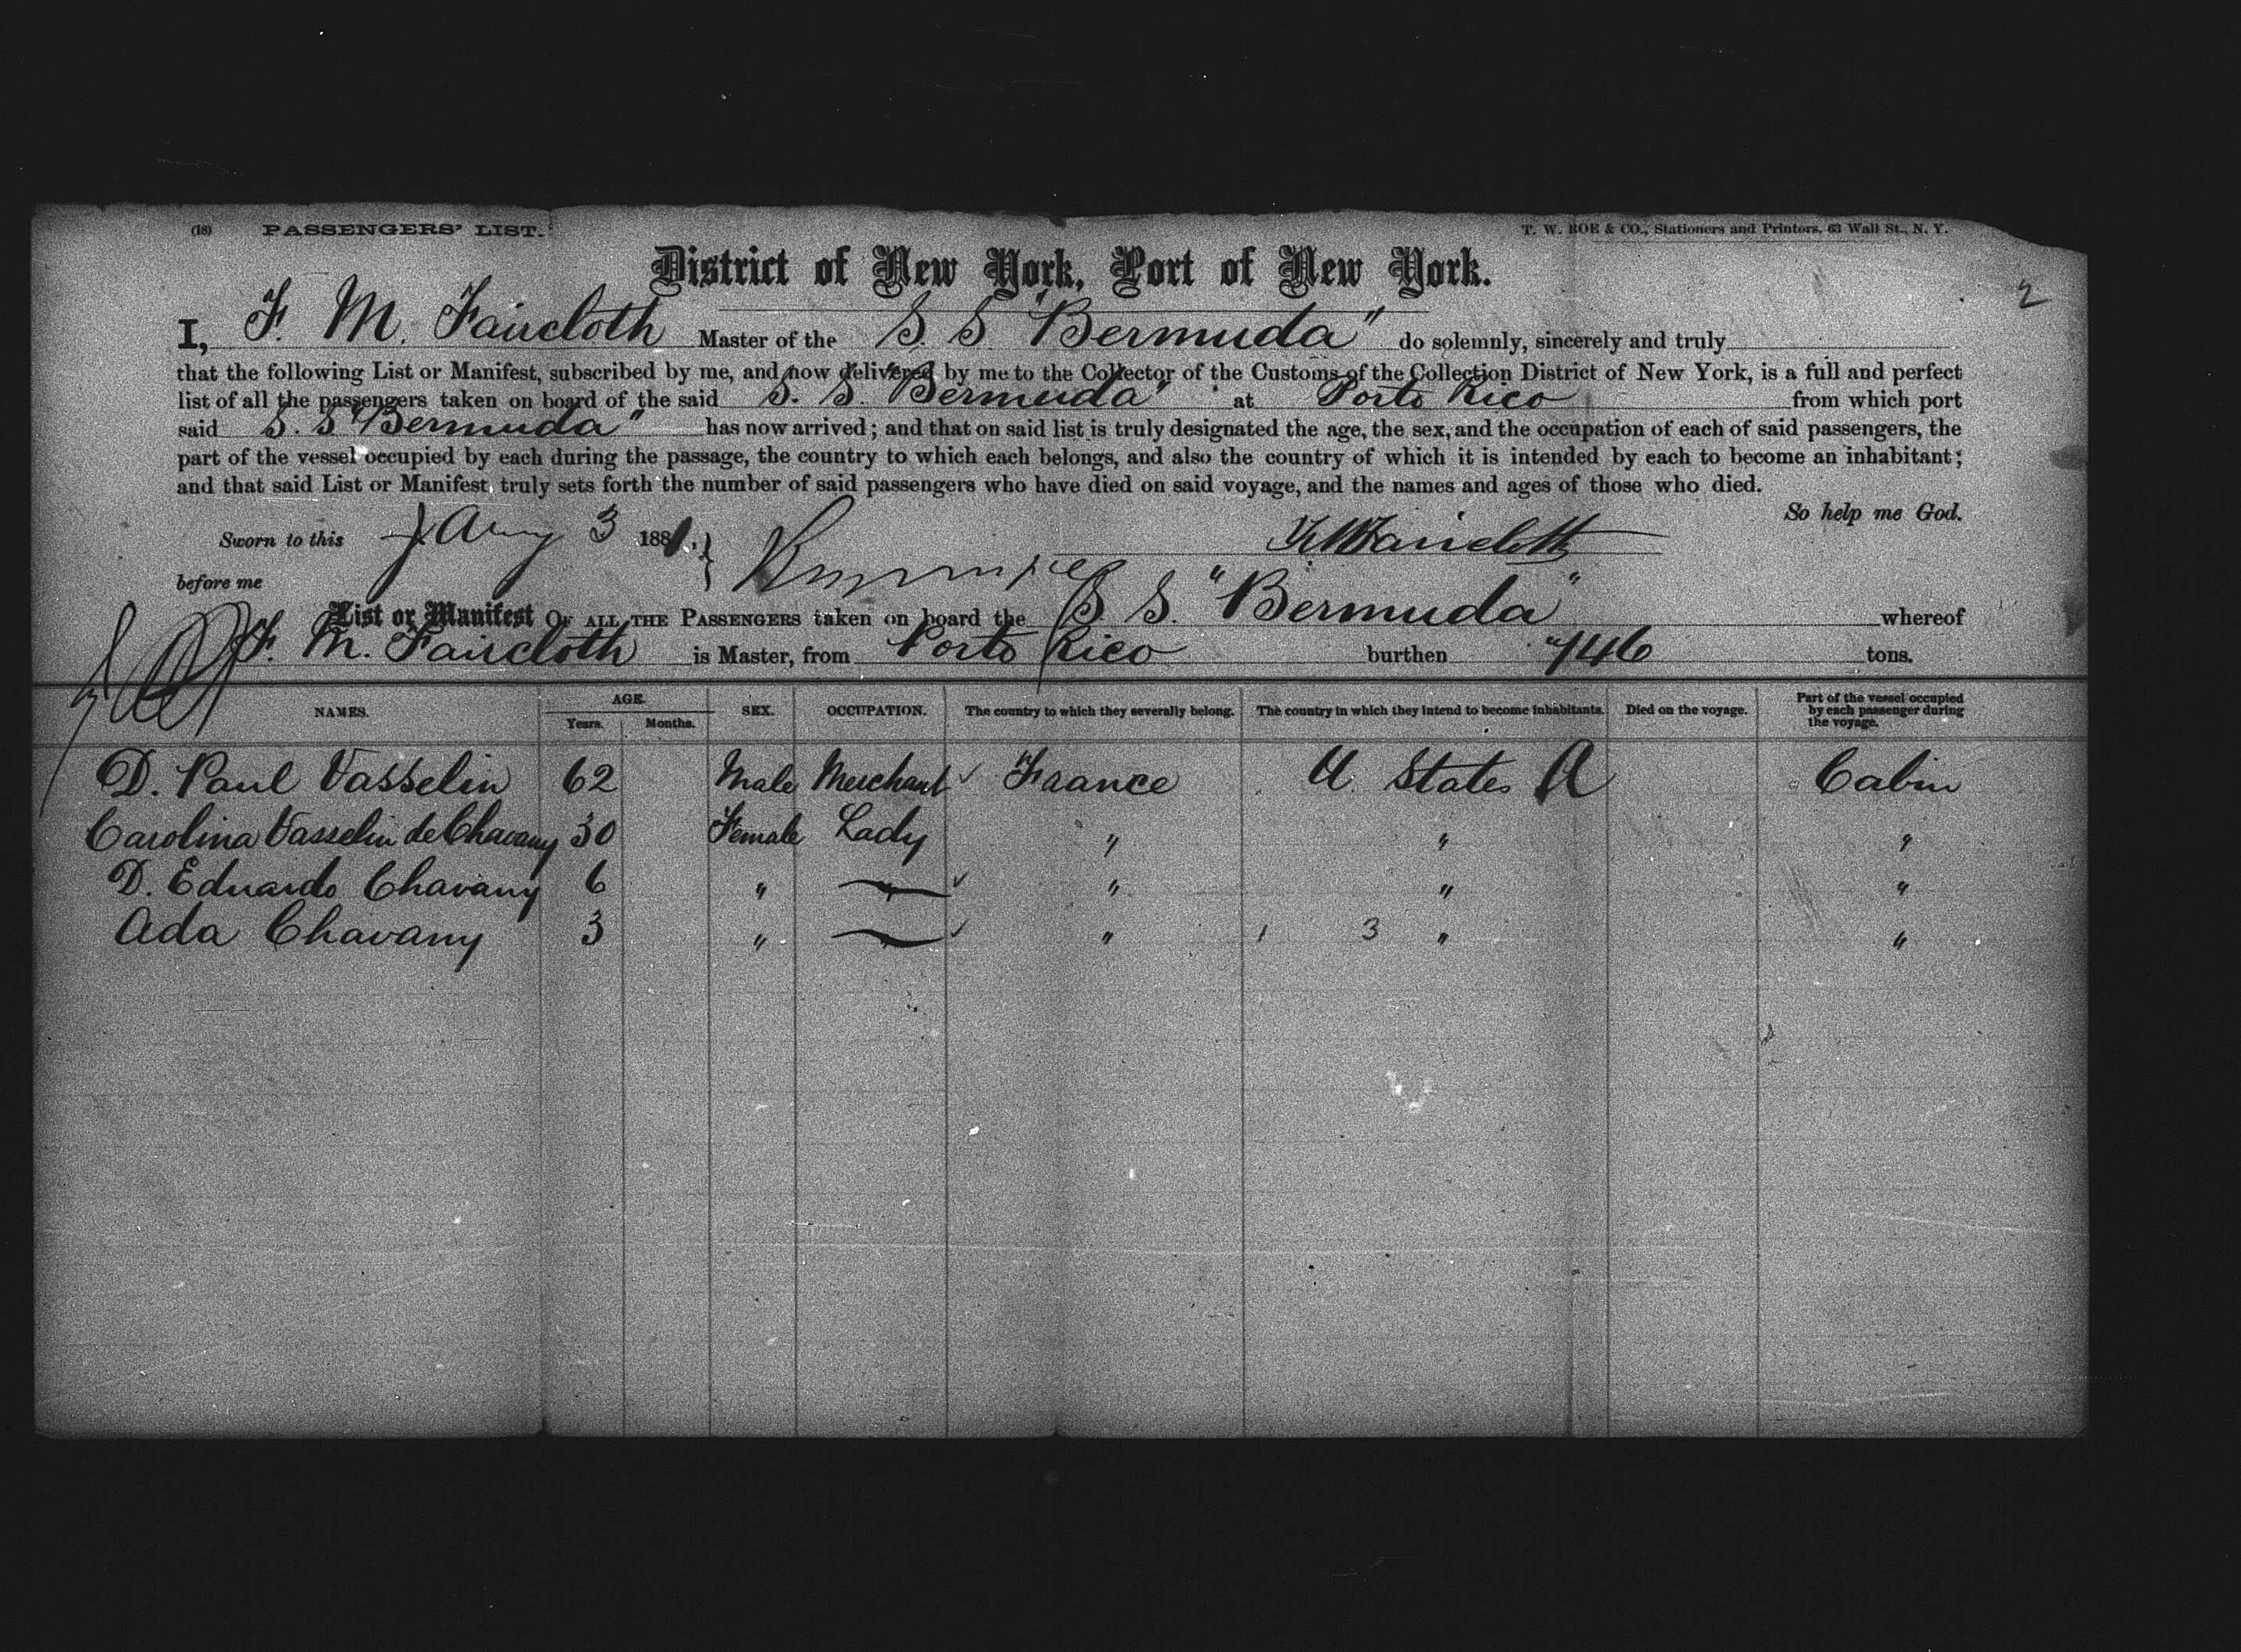 (18) PASSENGERS' LIST. T. W. ROE & CO., Stationers and Printers, 63 Wall St., N. Y.
District of New York, Port of New York.
2
I, F. M. Faircloth Master of the S. S "Bermuda" do solemnly, sincerely and truly
that the following List or Manifest, subscribed by me, and now delivered by me to the Collector of the Customs of the Collection District of New York, is a full and perfect
list of all the passengers taken on board of the said S. S. "Bermuda" at Porto Rico from which port
said S. S "Bermuda" has now arrived; and that on said list is truly designated the age, the sex, and the occupation of each of said passengers, the
part of the vessel occupied by each during the passage, the country to which each belongs, and also the country of which it is intended by each to become an inhabitant;
and that said List or Manifest truly sets forth the number of said passengers who have died on said voyage, and the names and ages of those who died.
So help me God.
Sworn to this Jany 3 1881. F M Faircloth
before me
List or Manifest OF ALL THE PASSENGERS taken on board the S S. "Bermuda" whereof
F. M. Faircloth is Master, from Porto Rico burthen 746 tons.
NAMES. AGE. Years. Months. SEX. OCCUPATION. The country to which they severally belong. The country in which they intend to become inhabitants. Died on the voyage. Part of the vessel occupied by each passenger during the voyage.
D. Paul Vasselin 62 Male Merchant France U. States A Cabin
Carolina Vasselin de Chavany 30 Female Lady " " "
D. Eduardo Chavany 6 " " " " "
Ada Chavany 3 " " " 1 3 " "